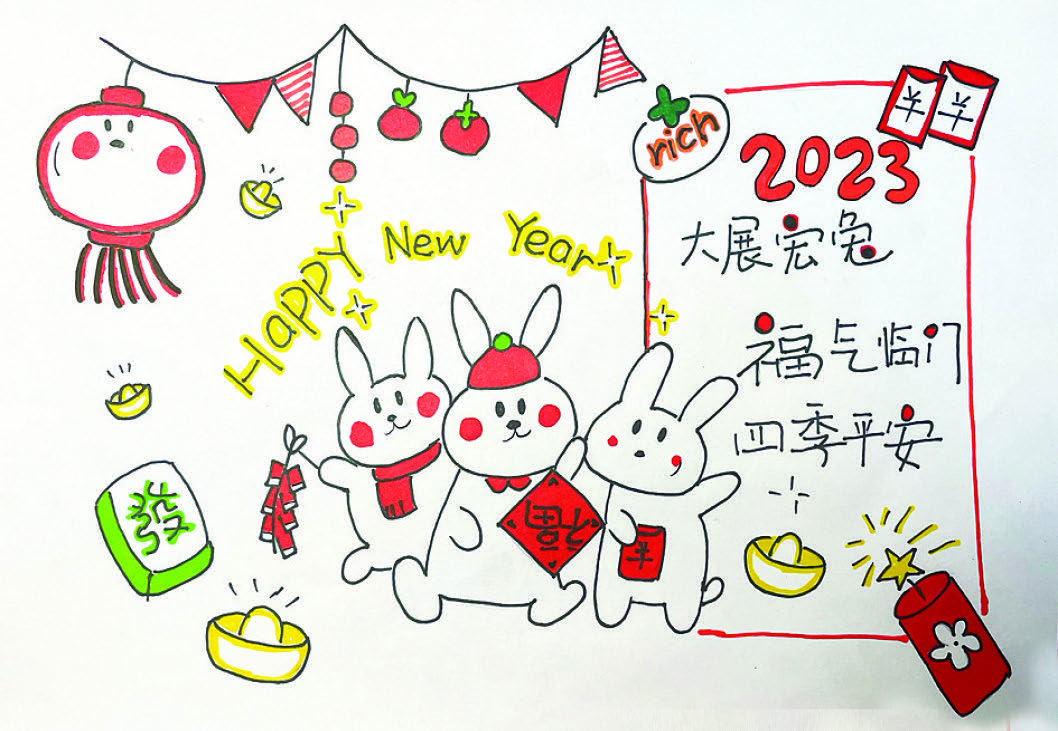 HaPPY New Year
rich
2023
大展宏兔
福气临门
四季平安
發
福